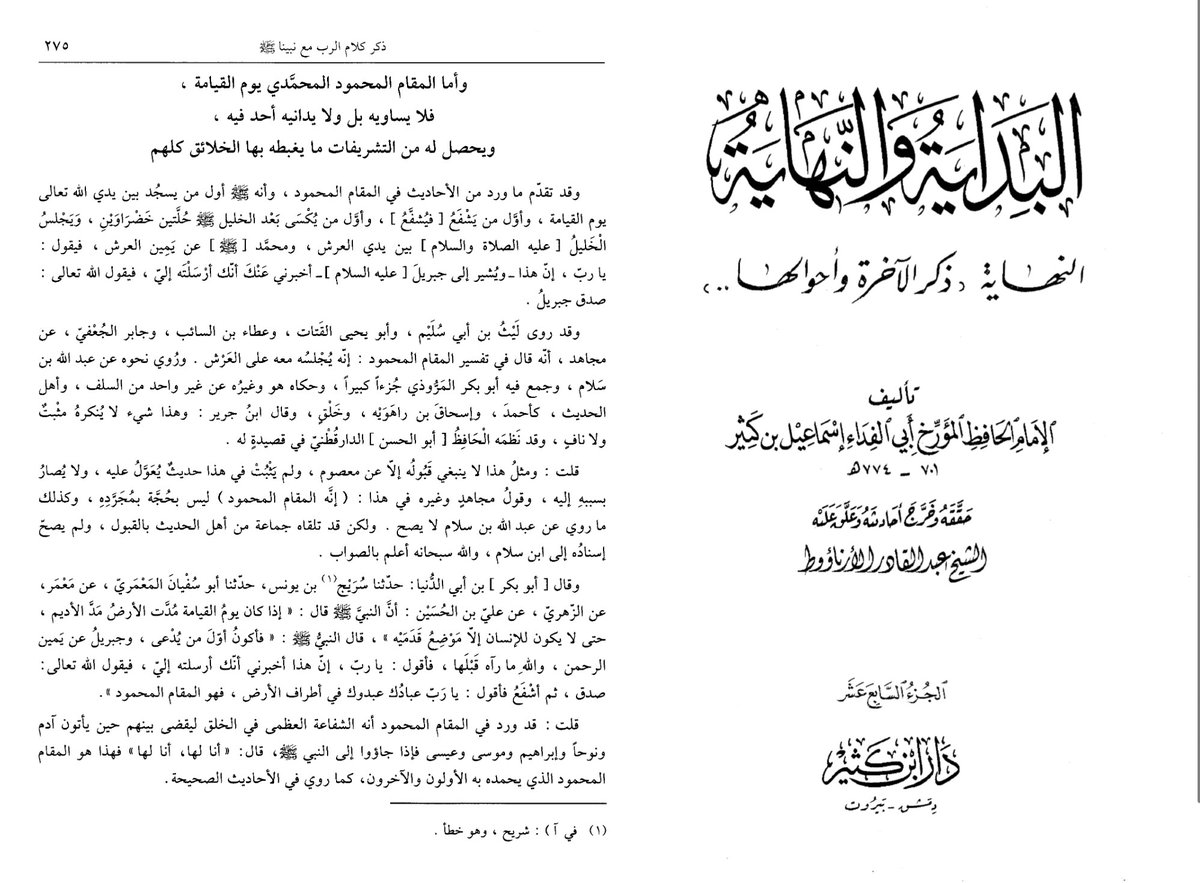 البداية والنهاية
النهاية «ذكر الآخرة وأحوالها..»
تأليف
الإمام الحافظ المؤرخ أبي الفداء إسماعيل بن كثير
٧٠١ - ٧٧٤ هـ
حققه وخرج أحاديثه وعلق عليه
الشيخ عبد القادر الأرناؤوط
الجزء السابع عشر
دار ابن كثير
دمشق - بيروت
ذكر كلام الرب مع نبينا ﷺ ٢٧٥
وأما المقام المحمود المحمَّدي يوم القيامة ،
فلا يساويه بل ولا يدانيه أحد فيه ،
ويحصل له من التشريفات ما يغبطه بها الخلائق كلهم
وقد تقدّم ما ورد من الأحاديث في المقام المحمود ، وأنه ﷺ أول من يسجُد بين يدي الله تعالى
يوم القيامة ، وأوَّل من يَشْفَعُ [ فيُشفَّعُ ] ، وأوَّل من يُكْسَى بَعْد الخليل ﷺ حُلَّتين خَضْرَاوَيْنِ ، وَيَجْلسُ
الْخَليلُ [ عليه الصلاة والسلام ] بين يدي العرش ، ومحمَّد [ ﷺ ] عن يَمِين العرش ، فيقول :
يا ربّ ، إنّ هذا ـ ويُشير إلى جبريلَ [ عليه السلام ] ـ أخبرني عَنْكَ أنّك أرْسَلْتَه إليّ ، فيقول الله تعالى :
صدق جبريلُ .
وقد روى لَيْثُ بن أبي سُلَيْم ، وأبو يحيى القَتات ، وعطاء بن السائب ، وجابر الجُعْفيّ ، عن
مجاهد ، أنّه قال في تفسير المقام المحمود : إنّه يُجْلسُه معه على العَرْش . ورُوي نحوه عن عبد الله بن
سَلام ، وجمع فيه أبو بكر المَرُّوذي جُزءاً كبيراً ، وحكاه هو وغيرُه عن غير واحد من السلف ، وأهل
الحديث ، كأحمدَ ، وإسحاقَ بن راهَوَيْه ، وخَلْقٍ ، وقال ابنُ جرير : وهذا شيء لا يُنكرهُ مثْبتٌ
ولا نافٍ ، وقد نَظَمَه الْحَافِظُ [ أبو الحسن ] الدارقُطْنيّ في قصيدةٍ له .
قلت : ومثلُ هذا لا ينبغي قَبُولُه إلاّ عن معصوم ، ولم يَثْبُتْ في هذا حديثٌ يُعَوَّلُ عليه ، ولا يُصارُ
بسببهِ إليه ، وقولُ مجاهدٍ وغيره في هذا : ( إنَّه المقام المحمود ) ليس بحُجَّة بمُجَرَّدِهِ ، وكذلك
ما روي عن عبد الله بن سلام لا يصح . ولكن قد تلقاه جماعة من أهل الحديث بالقبول ، ولم يصحّ
إسنادُه إلى ابن سلام ، والله سبحانه أعلم بالصواب .
وقال [ أبو بكر ] بن أبي الدُّنيا: حدّثنا سُرَيْج(١) بن يونس، حدّثنا أبو سُفْيانَ المَعْمَريّ ، عن مَعْمَر،
عن الزّهريّ ، عن عليّ بن الحُسَيْن : أنَّ النبيَّ ﷺ قال : « إذا كان يومُ القيامة مُدَّت الأرضُ مَدَّ الأديم ،
حتى لا يكون للإنسان إلاّ مَوْضِعُ قَدَمَيْه » ، قال النبيُّ ﷺ : « فأكونُ أوّلَ من يُدْعى ، وجبريلُ عن يَمين
الرحمن ، واللهِ ما رآه قَبْلَها ، فأقول : يا ربّ ، إنّ هذا أخبرني أنّك أرسلته إليّ ، فيقول الله تعالى:
صدق ، ثم أشْفَعُ فأقول : يا رَبّ عبادُك عبدوك في أطراف الأرض ، فهو المقام المحمود » .
قلت : قد ورد في المقام المحمود أنه الشفاعة العظمى في الخلق ليقضى بينهم حين يأتون آدم
ونوحاً وإبراهيم وموسى وعيسى فإذا جاؤوا إلى النبي ﷺ، قال: « أنا لها، أنا لها » فهذا هو المقام
المحمود الذي يحمده به الأولون والآخرون، كما روي في الأحاديث الصحيحة.
(١) في آ ) : شريح ، وهو خطأ .